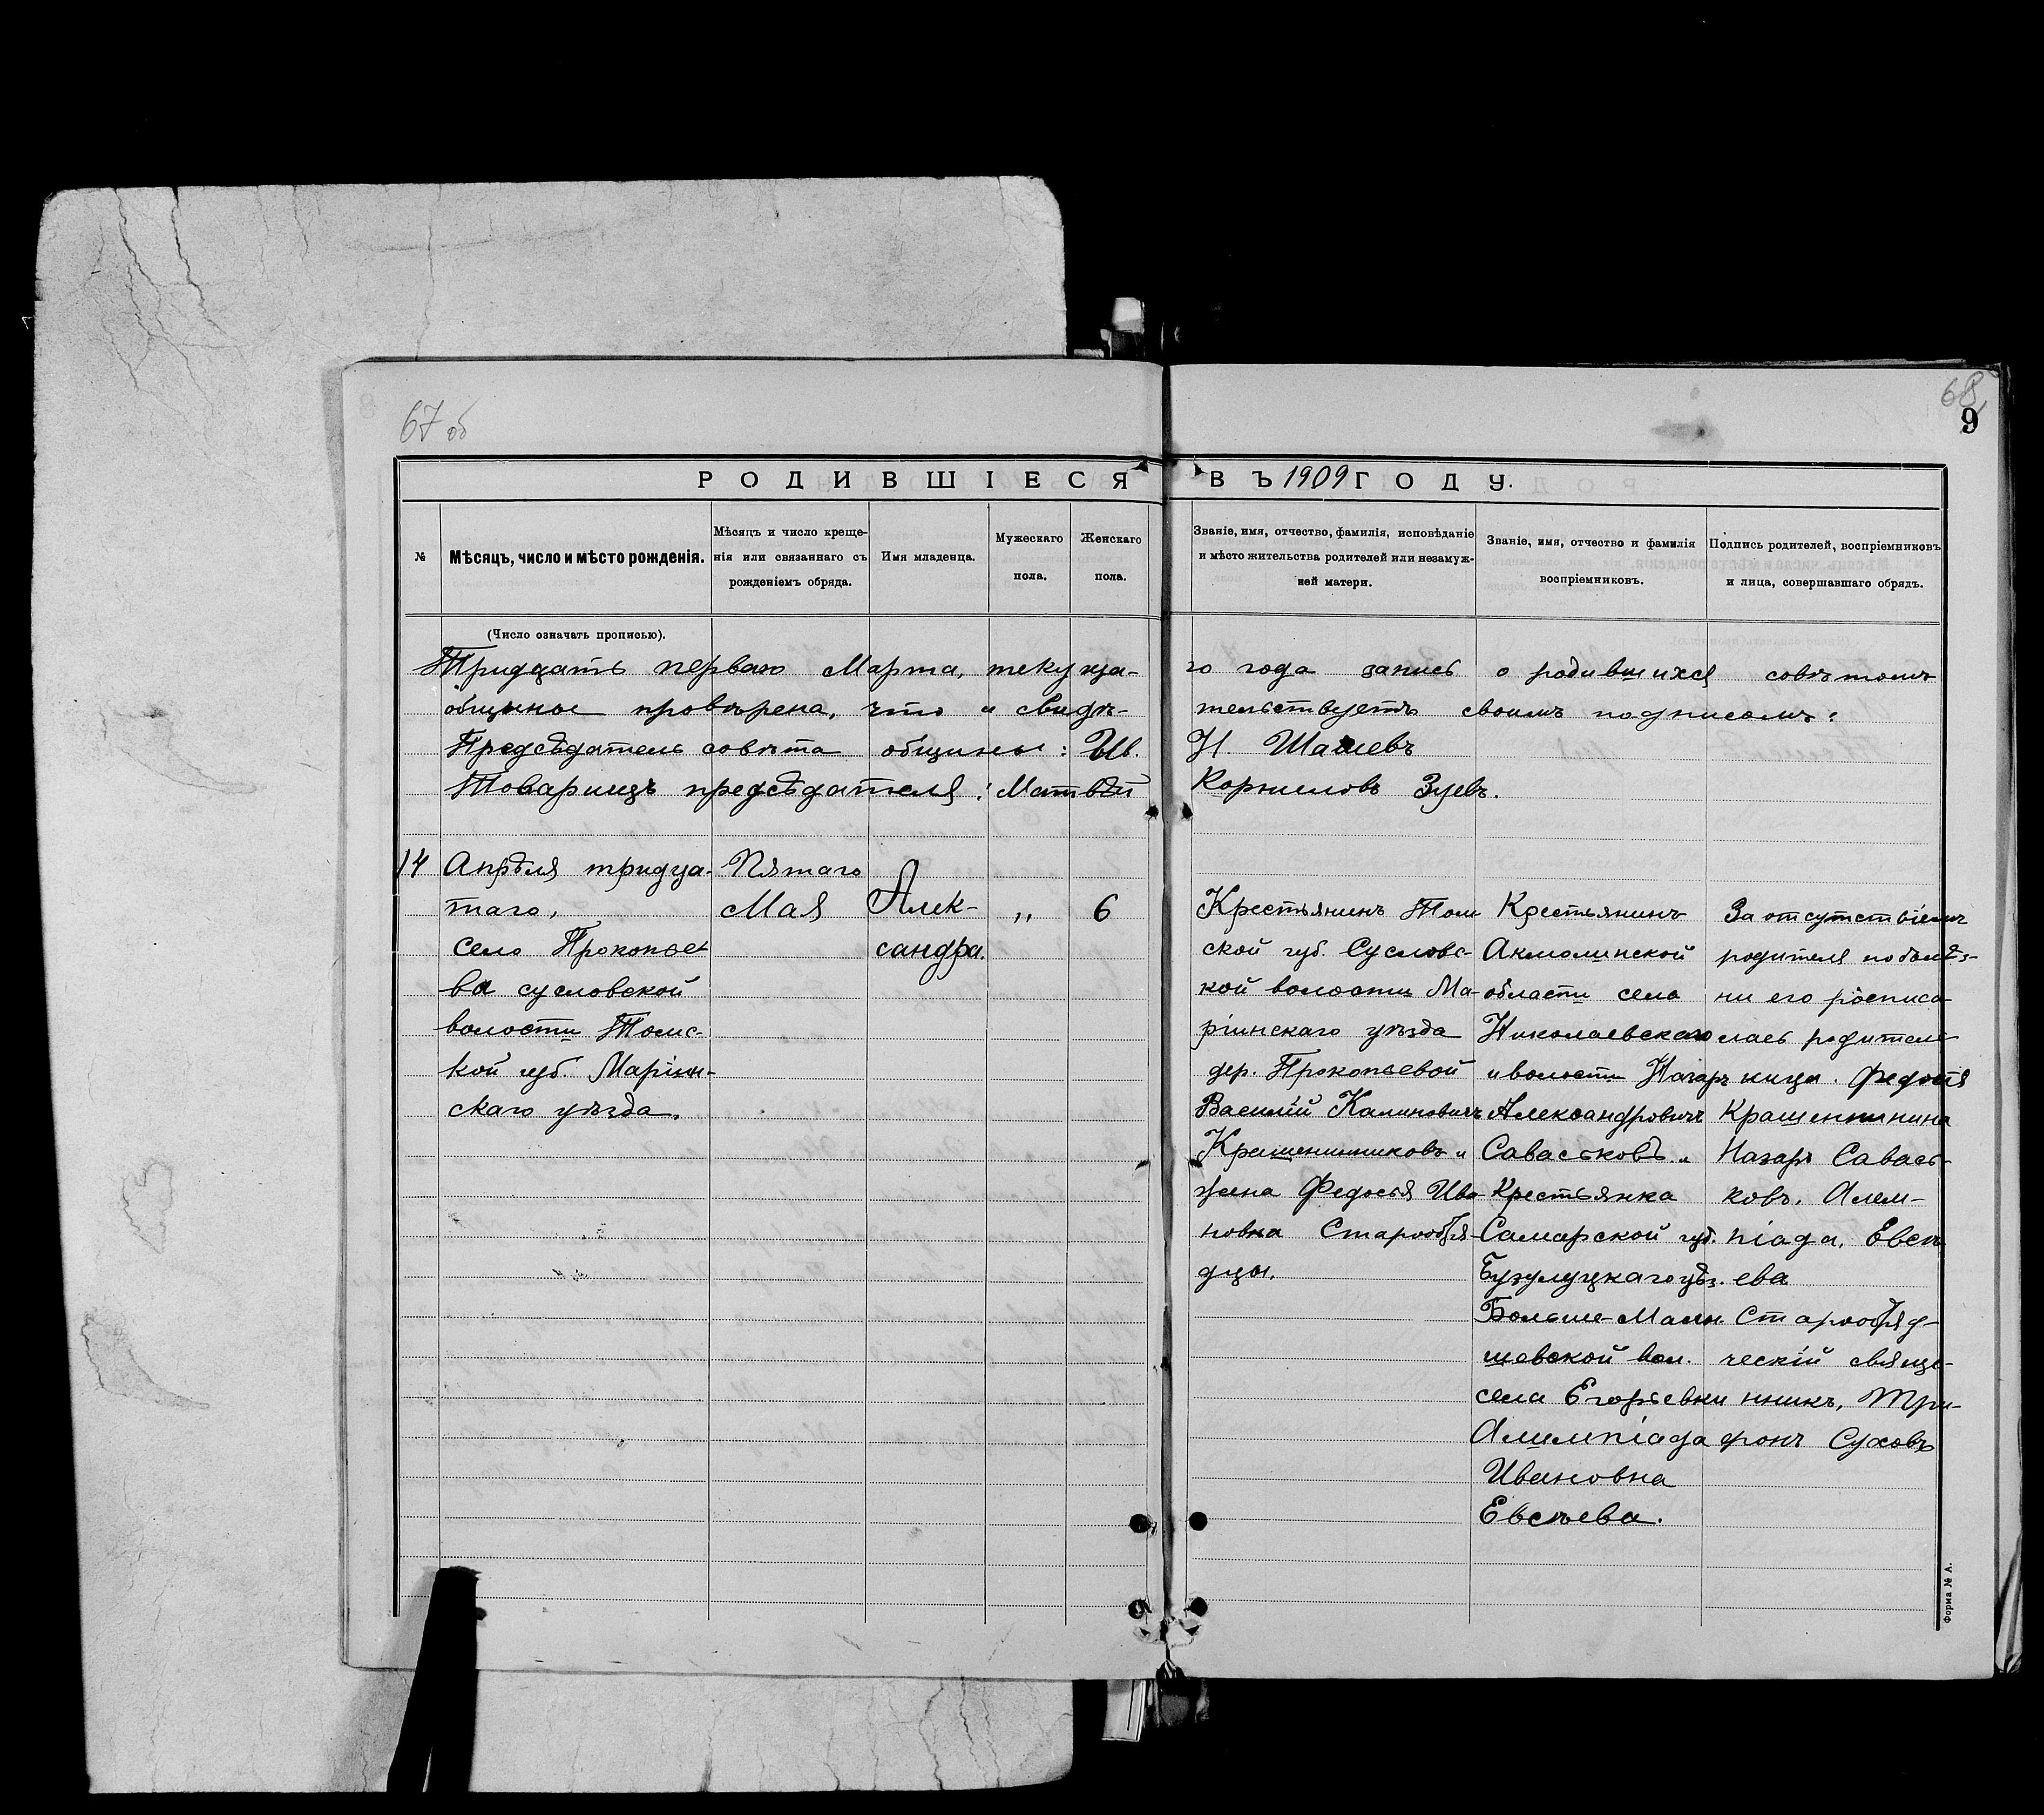 67 об
68
9
РОДИВШІЕСЯ ВЪ 1909 ГОДУ.
№
Мѣсяцъ, число и мѣсто рожденія.
Мѣсяцъ и число креще-
нія или связаннаго съ
рожденіемъ обряда.
Имя младенца.
Мужескаго
пола.
Женскаго
пола.
Званіе, имя, отчество, фамилія, исповѣданіе
и мѣсто жительства родителей или незамуж-
ней матери.
Званіе, имя, отчество и фамилія
воспріемниковъ.
Подпись родителей, воспріемниковъ
и лица, совершавшаго обрядъ.
(Число означать прописью).
Тридцать перваго Марта, текуща-го года запись о родившихся совѣтомъ
общины провѣрена, что и свидѣ-тельствуетъ своимъ подписомъ:
Предсѣдатель совѣта общины: Ив. И.
Товарищъ предсѣдателя: Матвѣй Корниловъ Зуевъ.
14
Апрѣля тридца-
таго,
село Прокопье-
ва сусловской
волости Томс-
кой губ. Маріин-
скаго уѣзда.
Пятаго
Мая
Алек-
сандра.
„
6
Крестьянинъ Том
ской губ. Сусловс-
кой волости Ма-
ріинскаго уѣзда
дер. Прокопьевой
Василій Калиновичъ
Крашенинниковъ и
жена Федосья Ива-
новна Старообря-
дцы.
Крестьянинъ
Акмолинской
области села
Николаевскаго
и волости Назаръ
Александровичъ
Саваськовъ и
Крестьянка
Самарской губ.
Бузулуцкаго уѣз.
Больше-Малы
шевской вол.
села Егорьевки
Алимпіада
Ивановна
Евсѣева.
За отсутствіемъ
родителя по болѣз-
ни его росписа
лась родитель
ница. Федосья
Крашенинина
Назаръ Савась-
ковъ. Алем-
піада. Евсѣ
ева
Старообряд-
ческій свяще-
нникъ, Три-
фонъ Суховъ
Форма № А.